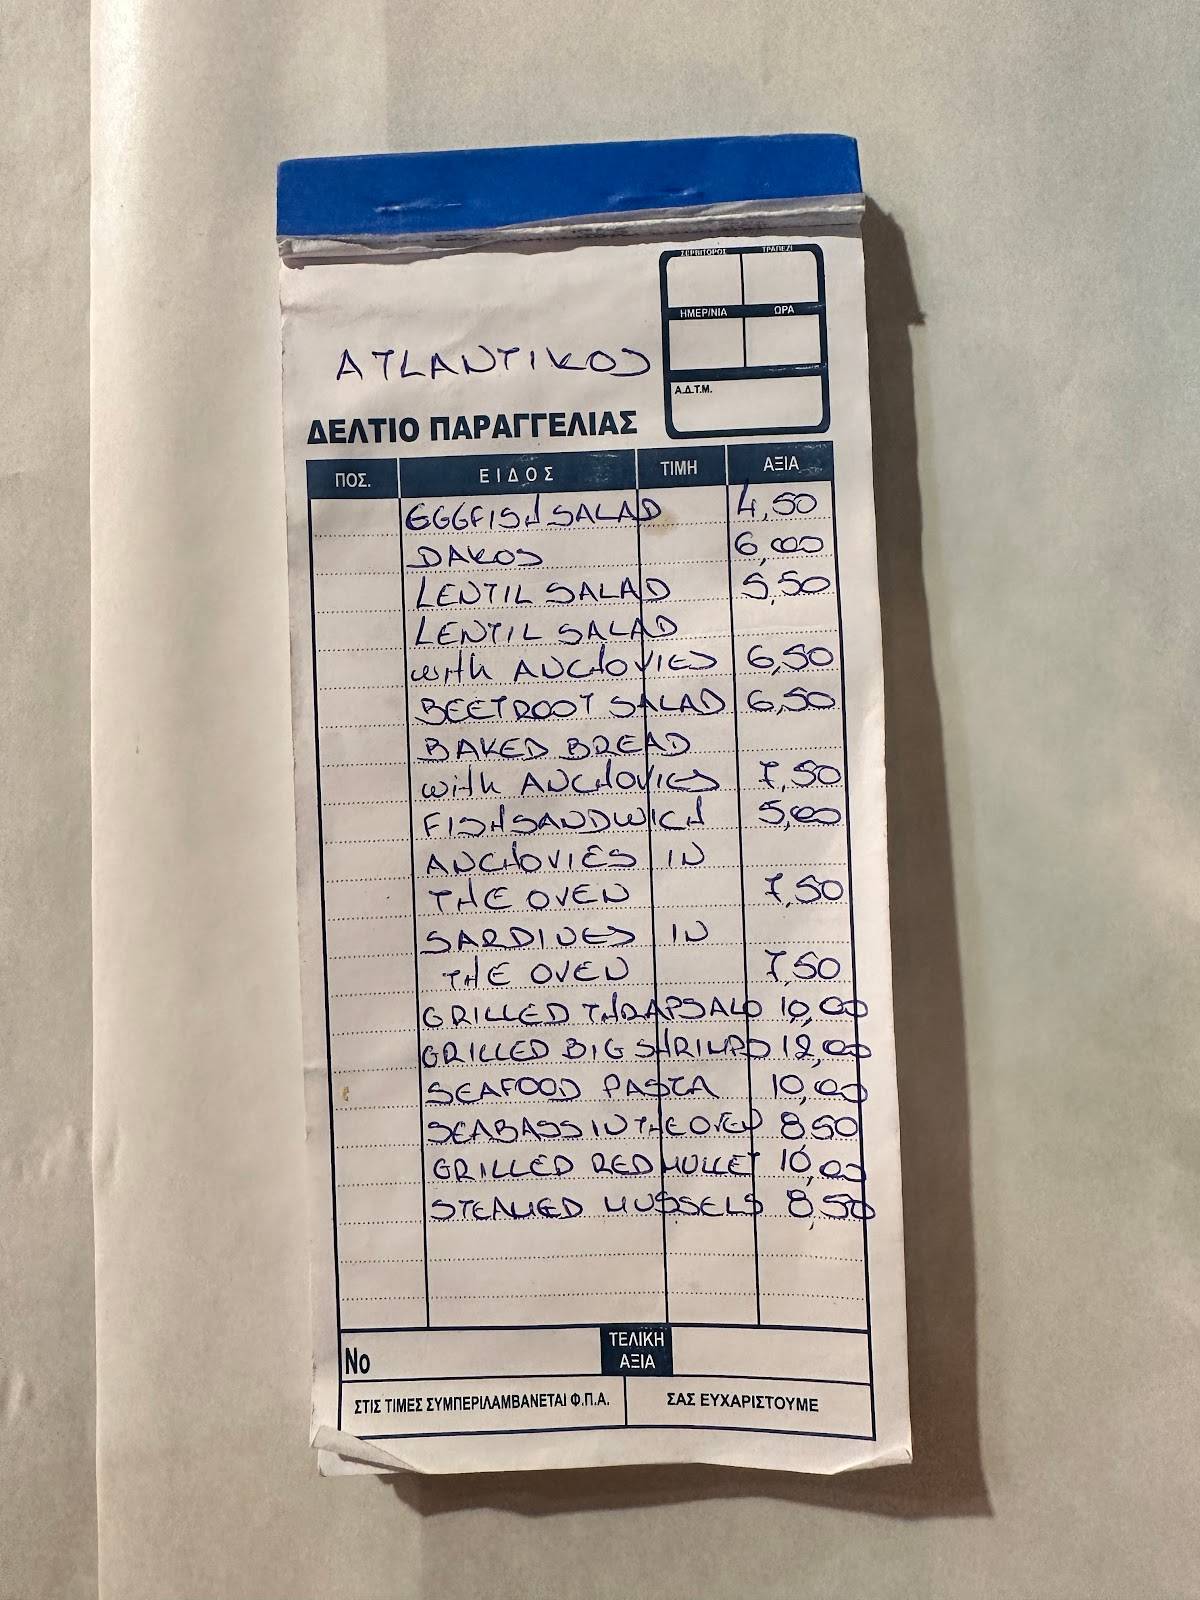 ΣΕΡΒΙΤΟΡΟΣ ΤΡΑΠΕΖΙ
ΗΜΕΡ/ΝΙΑ ΩΡΑ
ATLANTIKOS
Α.Δ.Τ.Μ.
ΔΕΛΤΙΟ ΠΑΡΑΓΓΕΛΙΑΣ
ΠΟΣ. ΕΙΔΟΣ ΤΙΜΗ ΑΞΙΑ
EGGFISH SALAD 4,50
DAKOS 6,00
LENTIL SALAD 5,50
LENTIL SALAD
with ANCHOVIES 6,50
BEETROOT SALAD 6,50
BAKED BREAD
with ANCHOVIES 7,50
FISH SANDWICH 5,00
ANCHOVIES IN
THE OVEN 7,50
SARDINES IN
THE OVEN 7,50
GRILLED THRAPSALO 10,00
GRILLED BIG SHRIMPS 12,00
SEAFOOD PASTA 10,00
SEABASS IN THE OVEN 8,50
GRILLED RED MULLET 10,00
STEAMED MUSSELS 8,50
Νο ΤΕΛΙΚΗ
ΑΞΙΑ
ΣΤΙΣ ΤΙΜΕΣ ΣΥΜΠΕΡΙΛΑΜΒΑΝΕΤΑΙ Φ.Π.Α. ΣΑΣ ΕΥΧΑΡΙΣΤΟΥΜΕ